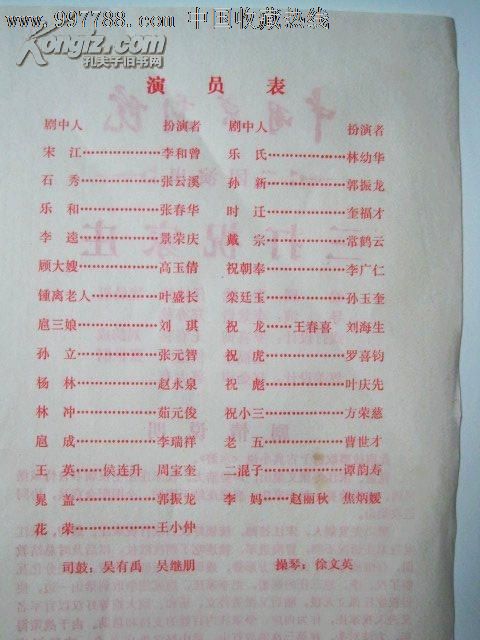 www.997788.com 中国收藏热线
Kongfz.com
孔夫子旧书网
演员表
剧中人 扮演者 剧中人 扮演者
宋江………………李和曾 乐氏………………林幼华
石秀………………张云溪 孙新………………郭振龙
乐和………………张春华 时迁………………奎福才
李逵………………景荣庆 戴宗………………常鹤云
顾大嫂………………高玉倩 祝朝奉………………李广仁
锺离老人………………叶盛长 栾廷玉………………孙玉奎
扈三娘………………刘琪 祝龙……王春喜 刘海生
孙立………………张元智 祝虎………………罗喜钧
杨林………………赵永泉 祝彪………………叶庆先
林冲………………茹元俊 祝小三………………方荣慈
扈成………………李瑞祥 老五………………曹世才
王英……侯连升 周宝奎 二混子………………谭韵寿
晁盖………………郭振龙 李妈……赵丽秋 焦炳媛
花荣………………王小仲
司鼓：吴有禹 吴继朋 操琴：徐文英